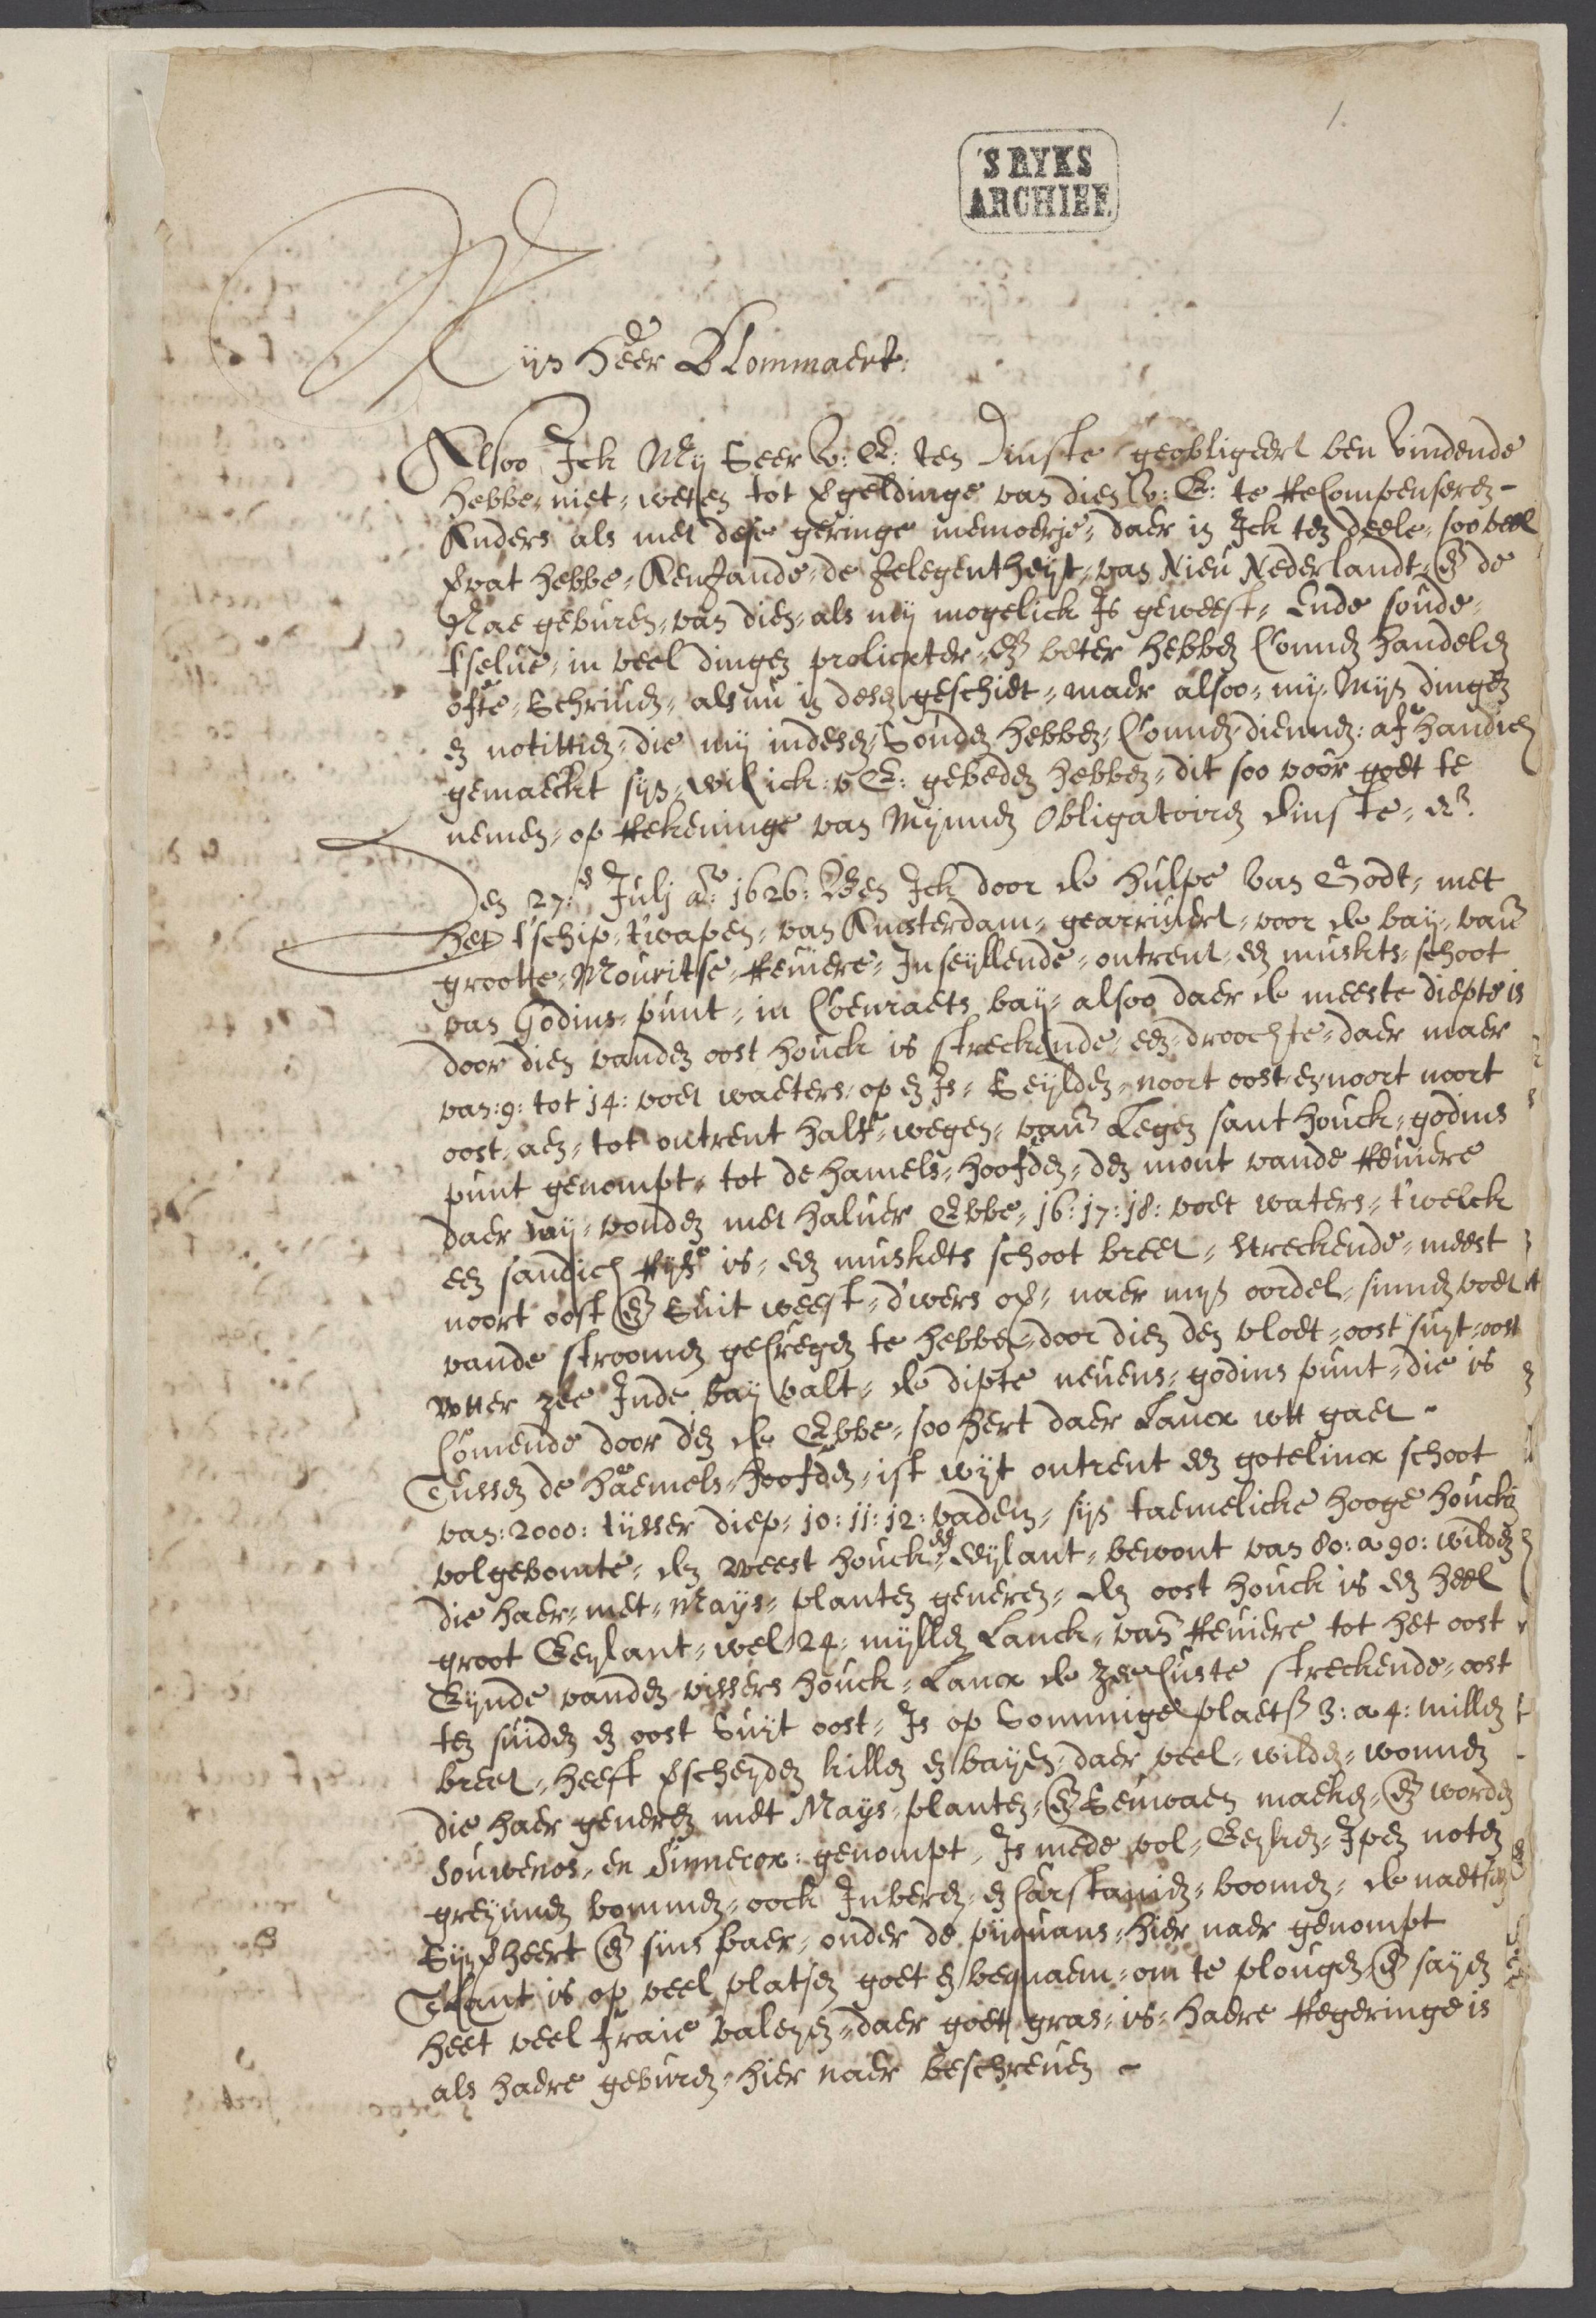 1.
'S RYKS
ARCHIEF
Myn Heer Blommaert:
Alsoo Ick My Seer V: E: ten Dinste geobligeert ben vindende
hebbe niet weten tot vgeldinge van dien V: E: te Recompenseren
Anders als met dese geringe memoerje daer in Ick ten deele soo veel
vvat hebbe de gelegentheyt van Nieu Nederlandt en de
Nae geburen van dien als my mogelick Is geweest Ende soude
tselue in veel dingen prolixter en beter hebben Connen handelen
ofte Schriuen als nu in desen geschiet maer alsoo my Myn dingen
en notittien die my indesen Souden hebben Connen dienen af handich
gemaeckt syn wil ick: v E: gebeden hebben dit soo voor goet te
nemen op Rekeninge van Mynnen Obligatoiren dinste
Den 27: July ao: 1626: Ben Ick door de hulpe van Godt met
het t'schip t'wapen van Amsterdam gearriueert voor de bay van
grootte Mouritse Reuiere Inseyllende ontrent een muskets schoot
van Godins punt in Coenraets bay alsoo daer de meeste diepte is
door dien vanden oost houck is streckende een droochte daer maer
van: 9: tot 14: voet waeters op en Is Seylden noort oost en noort noort
oost aen tot ontrent halff wegen van Legen sant houck godins
punt genompt tot de hamels hoofden den mont vande Reuiere
daer wy vonden met haluer Ebbe 16: 17: 18: voet waters t'welck
een sandich Ryff is een muskets schoot breet streckende meest
noort oost en Suit weest d'wers op naer myn oordel
vande stroomen gecregen te hebben door dien den vloet oost suyt oost
wtter zee Inde bay valt de dipte neuens godins punt die is
Comende door d'en de Ebbe soo hert daer Lancx wtt gaet
Tussen de haemels hoofden ist wyt ontrent een gotelincx schoot
van: 2000: tysser diep 10: 11: 12: vadem syn taemelicke hooge houcken
vol gebomte den weest houck een Eylant bewont van 80: a 90: wilden
die haer met Mays planten generen den oost houck is een heel
groot Eeylant wel 24: myllen Lanck van Reuiere tot het oost
Eynde vanden vissers houck Lancx de zee Custe streckende oost
ten suiden en oost Suyt oost Is op Sommige plaetsen 3: a 4: millen
breet heeft vscheyden killen en bayen daer veel wilden wonnen
die haer generen met Mays planten en Seuwaen maeken en worden
Souwenos en Sinnecox: genompt Is mede vol Eeyken Ipen noten
greynnen bommen oock Inberen en Carstanien boomen de naetsy
Syn vheert en sins baer onder de pyquans hier naer genompt
Tlant is op veel platsen goet en bequaem om te plougen en sayen
heet veel fraie valeyen daer goet gras is haere Regeringe is
als haere geburen hier naer beschreuen